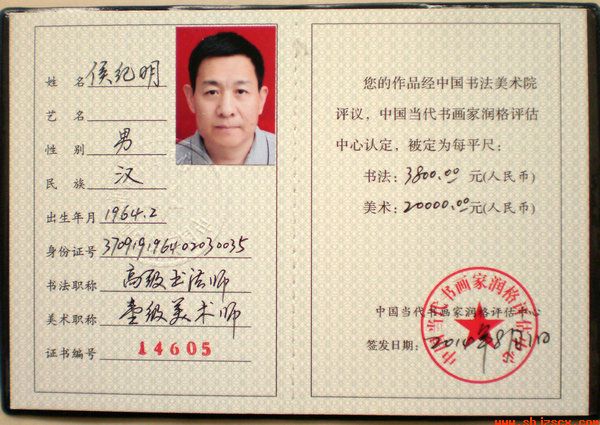 姓 名 侯纪明
艺 名
性 别 男
民 族 汉
出生年月 1964.2
身份证号
书法职称 高级书法师
美术职称 壹级美术师
证书编号 14605
您的作品经中国书法美术院
评议，中国当代书画家润格评估
中心认定，被定为每平尺：
书法：3800.00 元(人民币)
美术：20000.00 元(人民币)
中国当代书画家润格评估中心
中国当代书画家润格评估中心
签发日期：2014年8月1日
www.shjzscx.com